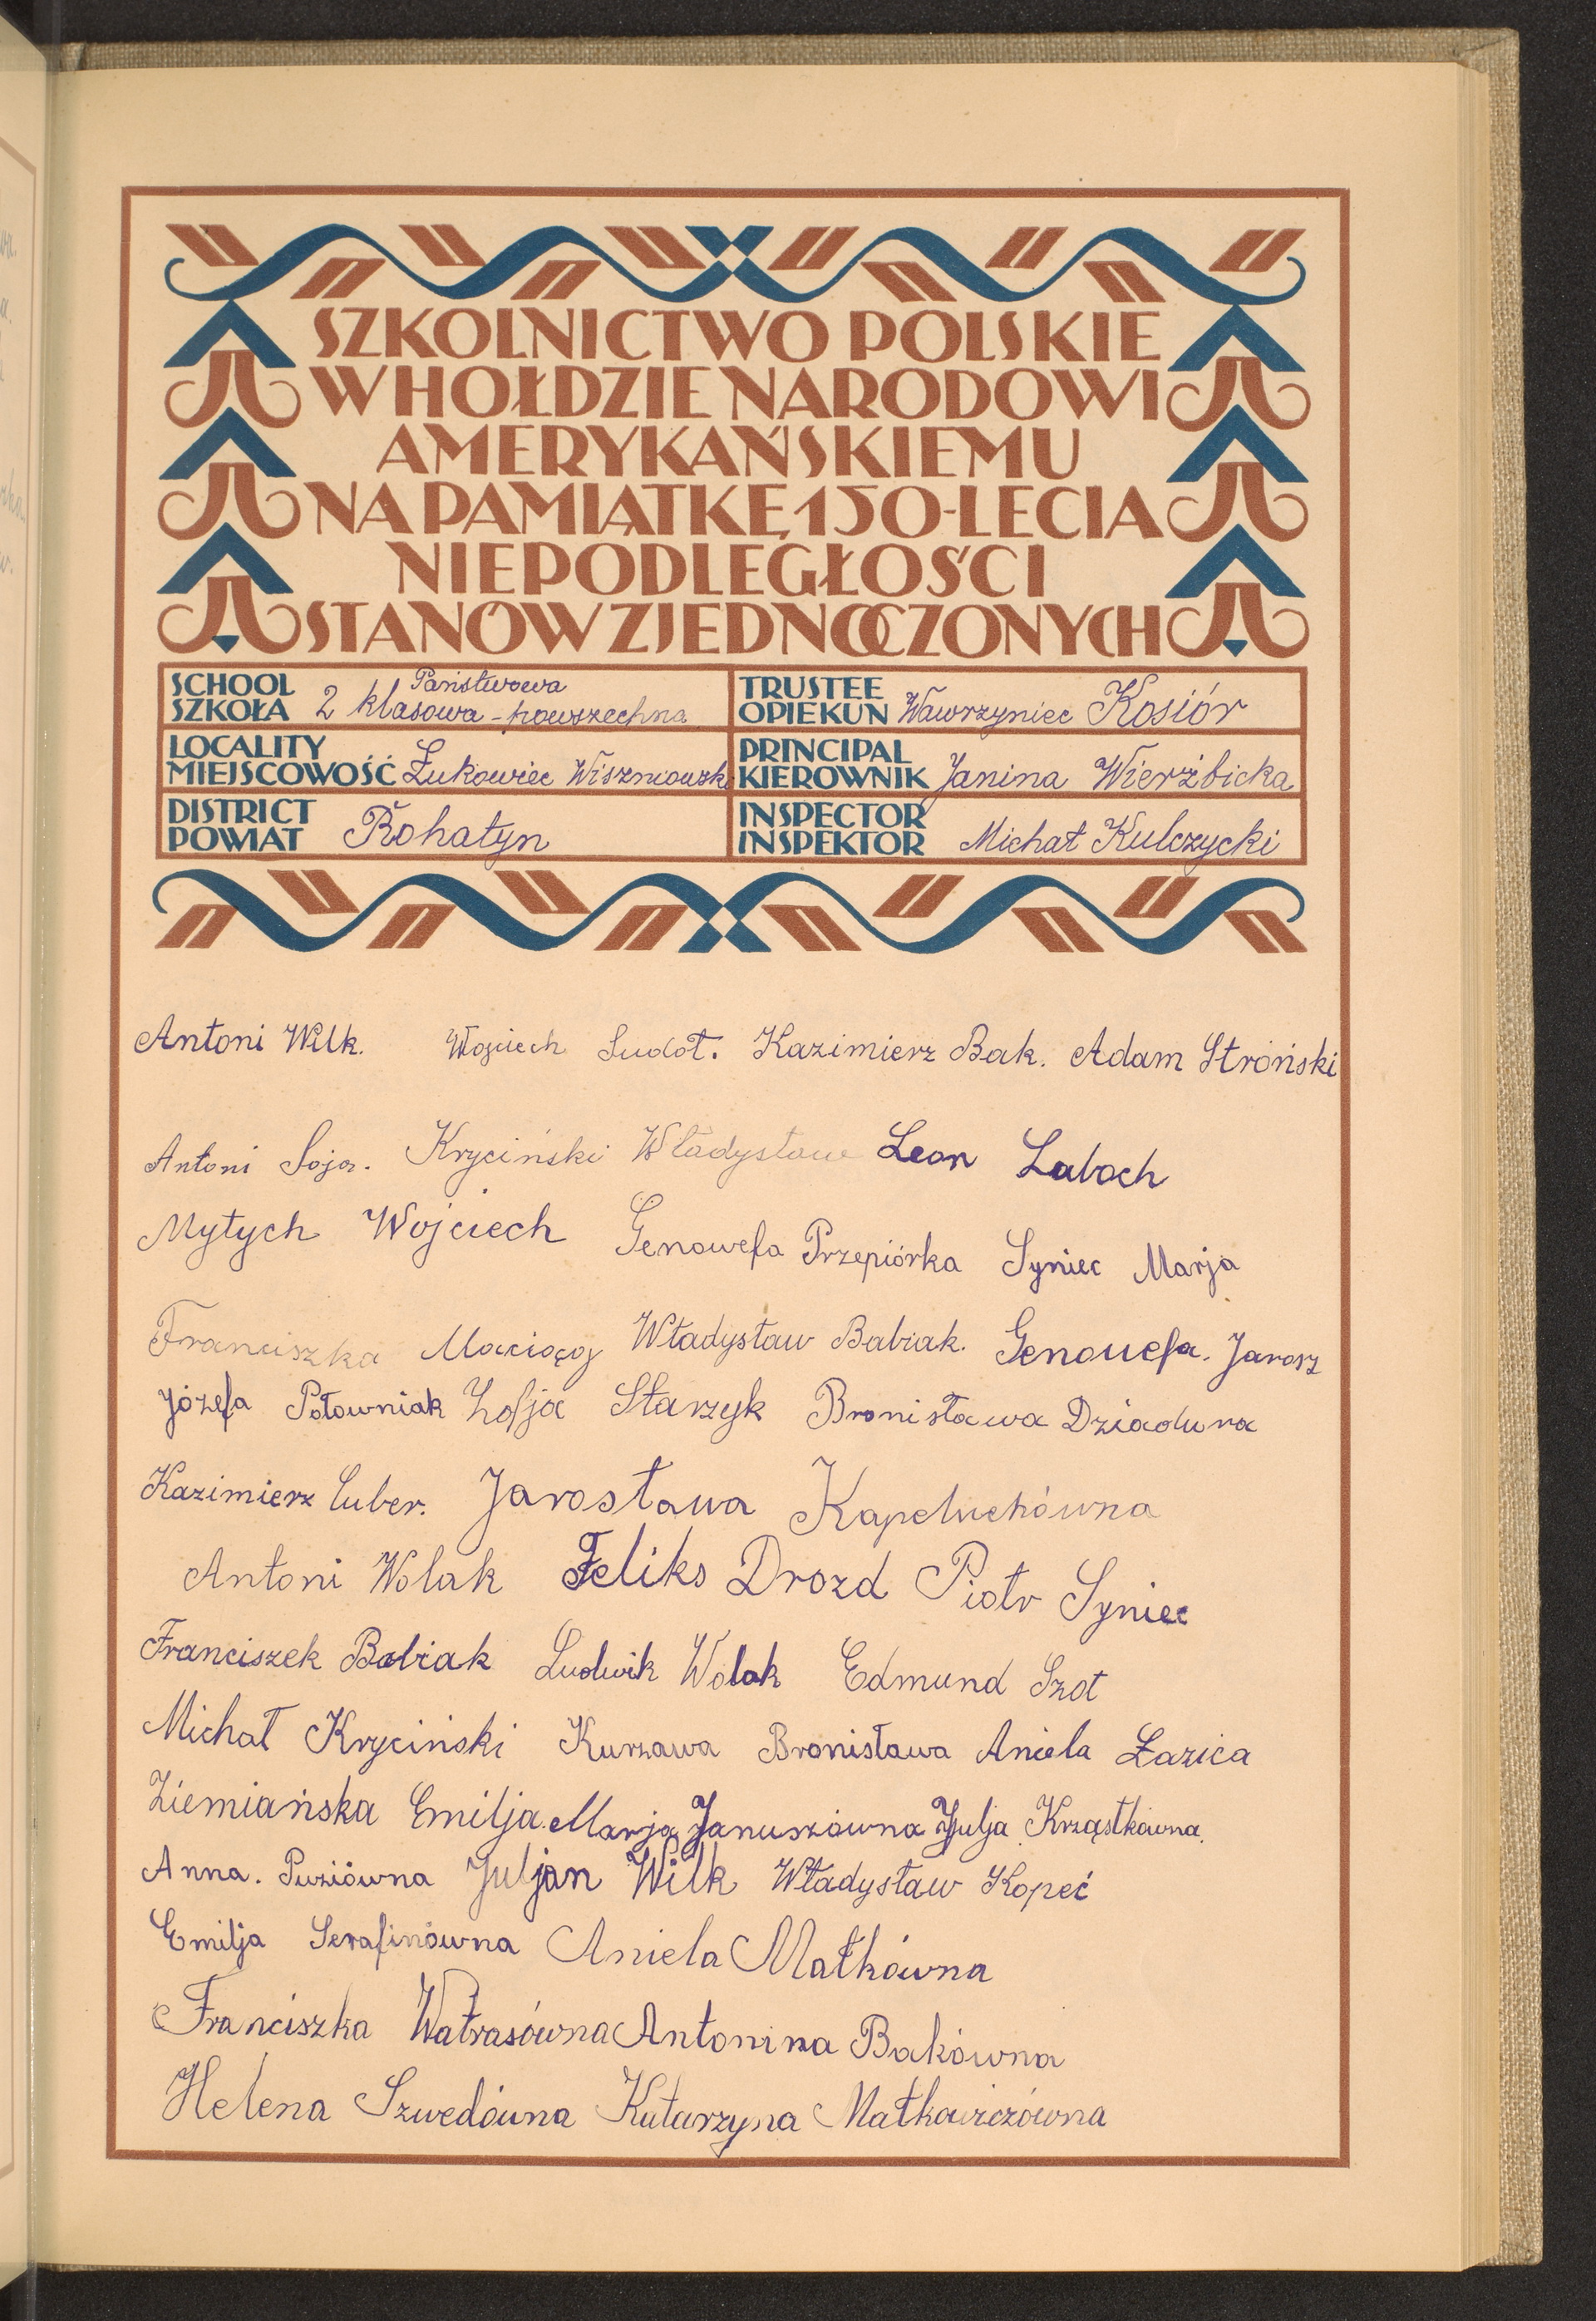 SZKOLNICTWO POLSKIE
W HOŁDZIE NARODOWI
AMERYKAŃSKIEMU
NA PAMIĄTKĘ 150-LECIA
NIEPODLEGŁOŚCI
STANÓW ZJEDNOCZONYCH
SCHOOL SZKOŁA Państwowa 2 klasowa - powszechna
TRUSTEE OPIEKUN Wawrzyniec Kosiór
LOCALITY MIEJSCOWOŚĆ Żukowiec Wiszniowski
PRINCIPAL KIEROWNIK Janina Wierżbicka
DISTRICT POWIAT Rohatyn
INSPECTOR INSPEKTOR Michał Kulczycki
Antoni Wilk. Wojciech Sudoł. Kazimierz Bak. Adam Stroński
Antoni Soja. Kryciński Władysław Leon Laboch
Mytych Wojciech Genowefa Przepiórka Syniec Marja
Franciszka Maciocg Władysław Babiak. Genowefa. Jarosz
Józefa Połowniak Zofja Starzyk Bronisława Dziadura
Kazimierz Cuber. Jarosława Kapeluchówna
Antoni Wolak Feliks Drozd Piotr Syniec
Franciszek Babiak Ludwik Wolak Edmund Szot
Michał Kryciński Kurzawa Bronisława Aniela Łazica
Ziemiańska Emilja. Marja Januszówna Julja Krząstkówna.
Anna. Puziówna Juljan Wilk Władysław Kopeć
Emilja Serafinówna Aniela Małkówna
Franciszka Watrasówna Antonina Bakówna
Helena Szwedówna Katarzyna Małkowiczówna